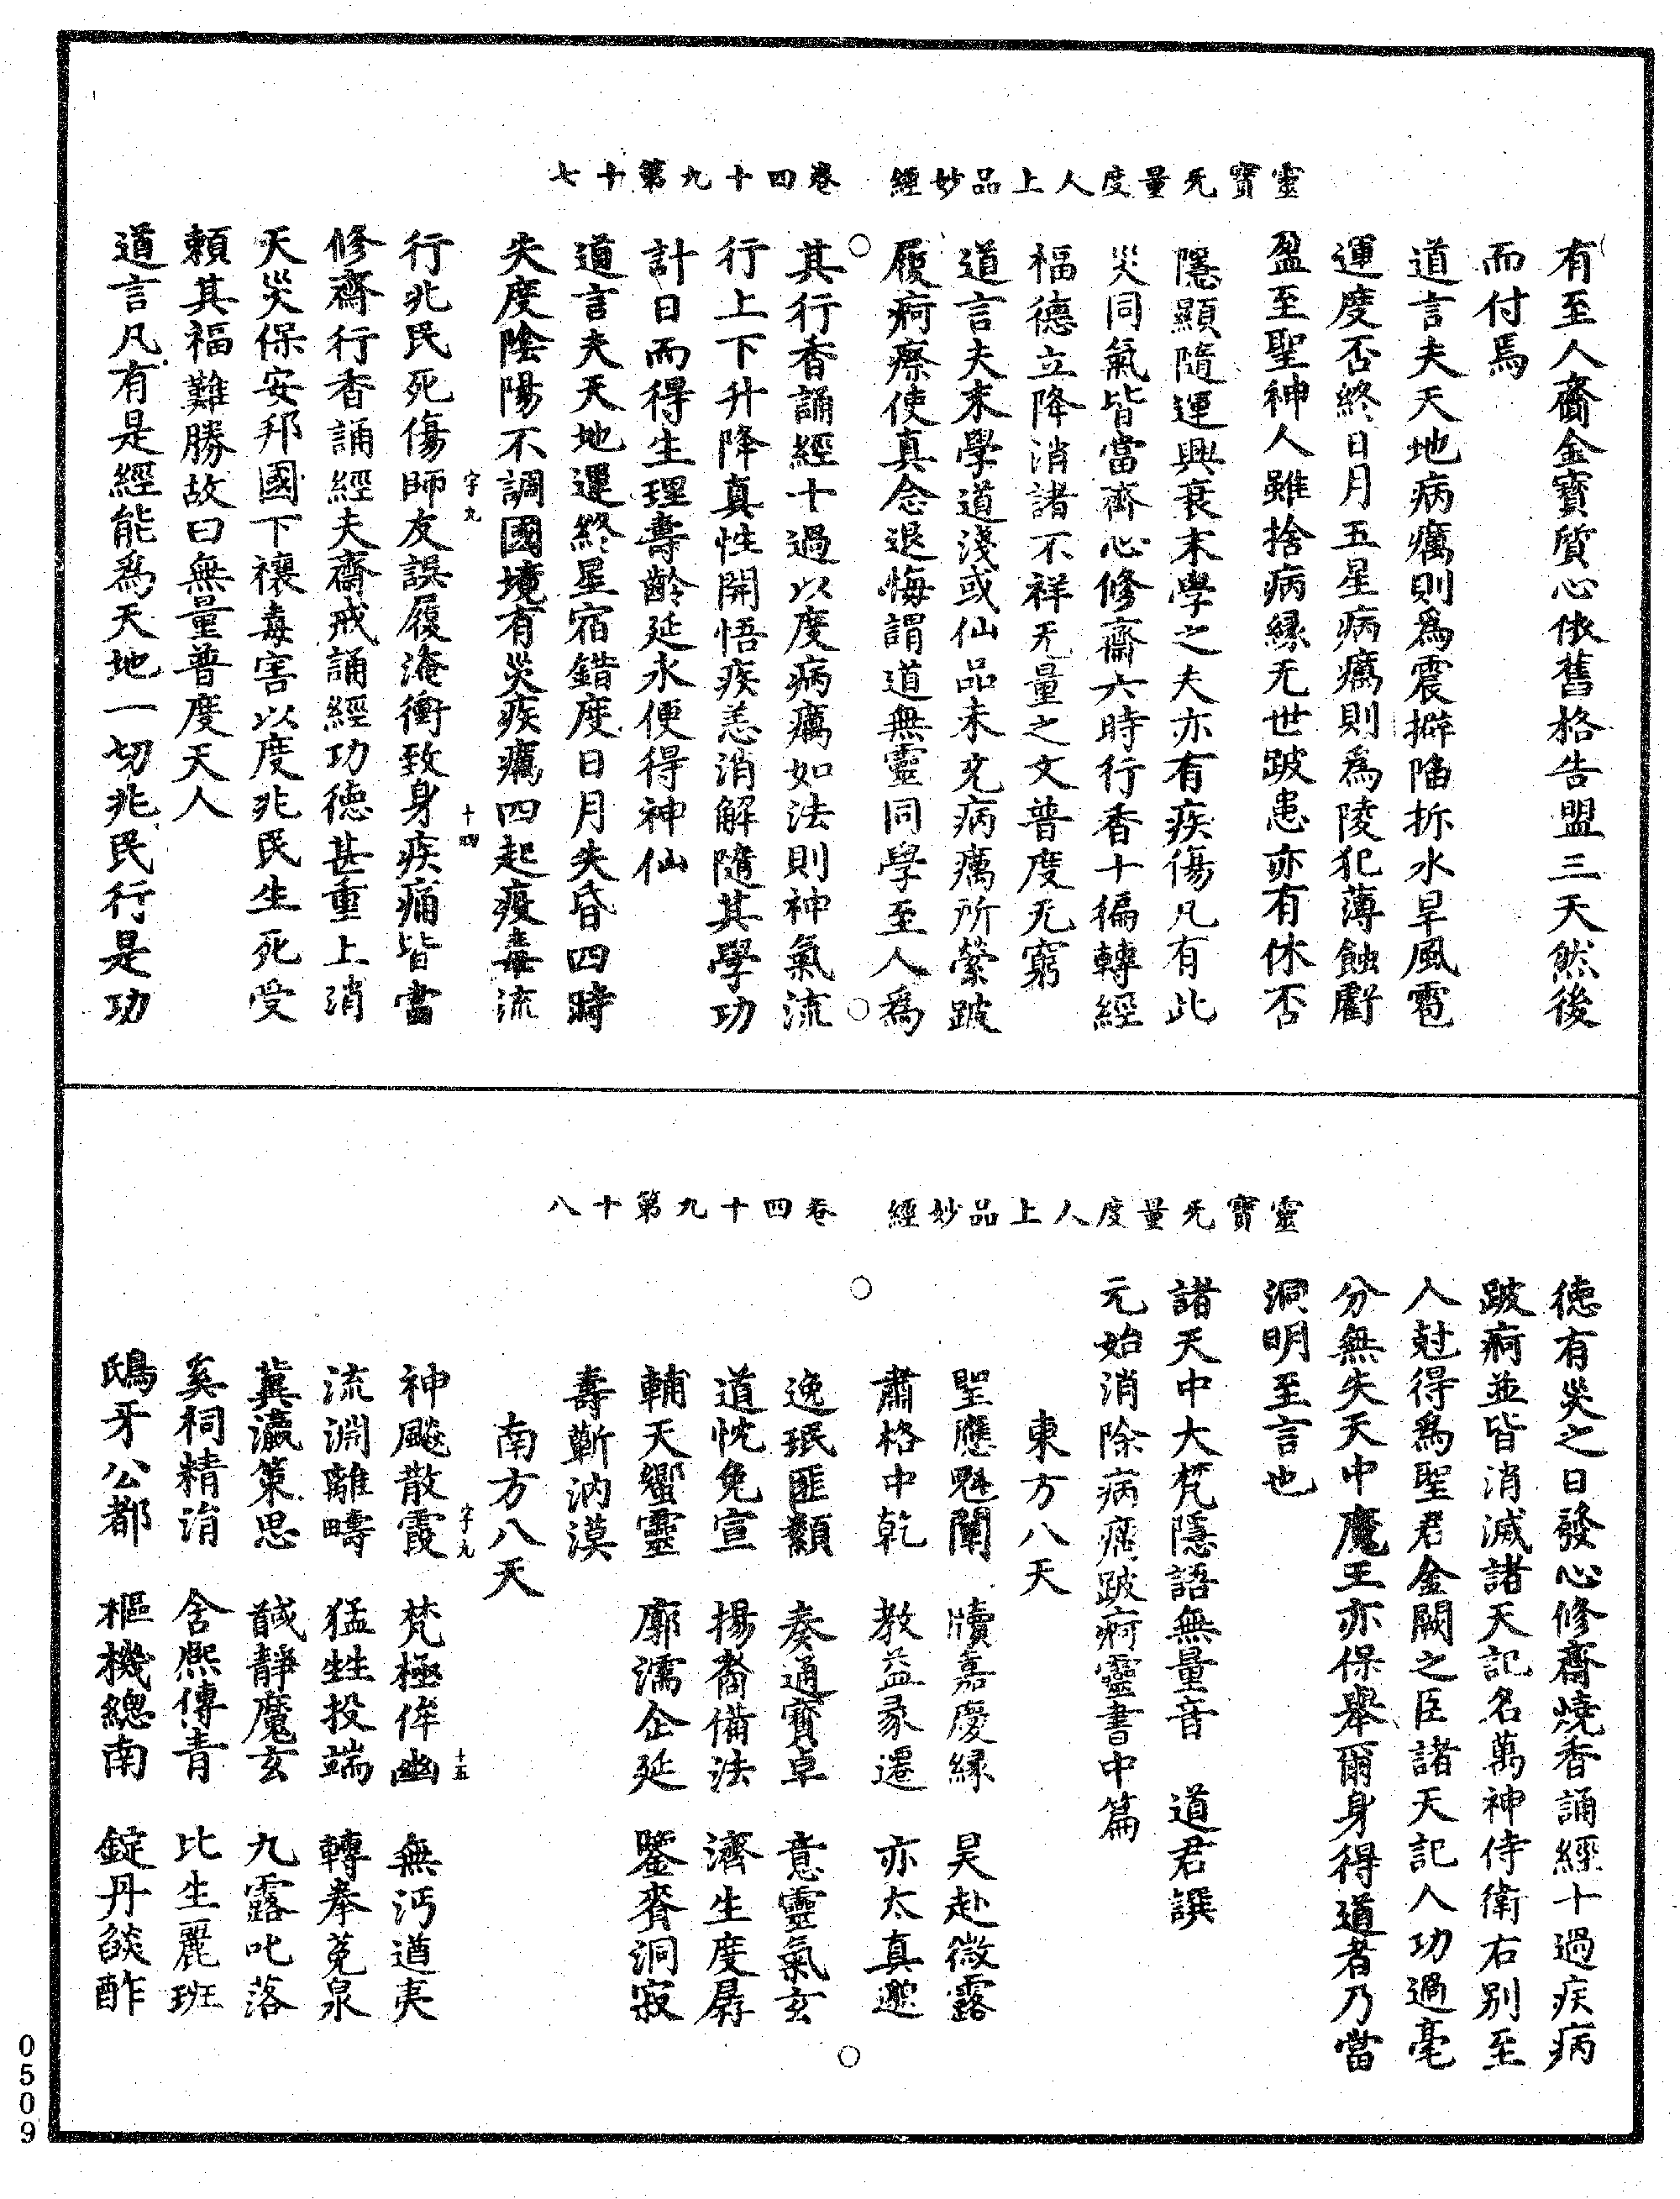 靈寶无量度人上品妙經 卷四十九第十七
有至人齋金寶質心依舊格告盟三天然後
而付焉
道言夫天地病癘則為震擗陷拆水旱風雹
運度否終日月五星病癘則為陵犯薄蝕虧
盈至聖神人雖捨病緣无世跛患亦有休否
隱顯隨運興衰末學之夫亦有疾傷凡有此
災同氣皆當齊心修齋六時行香十徧轉經
福德立降消諸不祥无量之文普度无窮
道言夫末學道淺或仙品未充病癘所縈跛
履痾瘵使真念退悔謂道無靈同學至人為
其行香誦經十過以度病癘如法則神氣流
行上下升降真性開悟疾恙消解隨其學功
計日而得生理壽齡延永便得神仙
道言夫天地運終星宿錯度日月失昏四時
失度陰陽不調國境有災疾癘四起疫毒流
字九 十四
行兆民死傷師友誤履淹衝致身疾痛皆當
修齋行香誦經夫齋戒誦經功德甚重上消
天災保安邦國下禳毒害以度兆民生死受
賴其福難勝故曰無量普度天人
道言凡有是經能為天地一切兆民行是功
靈寶无量度人上品妙經 卷四十九第十八
德有災之日發心修齋燒香誦經十過疾病
跛痾並皆消滅諸天記名萬神侍衛右別至
人尅得為聖君金闕之臣諸天記人功過毫
分無失天中魔王亦保舉爾身得道者乃當
洞明至言也
諸天中大梵隱語無量音 道君譔
元始消除病瘧跛痾靈書中篇
東方八天
聖應魁闡 牘嘉慶緣 昊赴微露
肅格中乾 教益彖遷 亦太真邈
逸珉匪纇 奏通寶卓 意靈氣玄
道恍兔宣 揚裔備法 濟生度孱
輔天蠁靈 廓濡企延 鑒賚洞寂
壽蘄汭漠
南方八天
字九 十五
神飇散霞 梵極侔幽 無沔遒夷
流淵離疇 猛甡投端 轉奉莬泉
蓂瀛策思 馘靜魔玄 九露叱落
奚祠精涓 含熙傳青 比生麗班
鴟牙公都 樞機總南 錠丹燄酢
0509